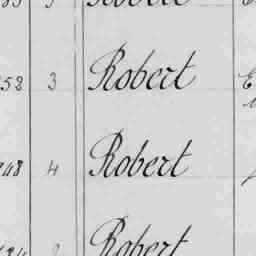 Robert
58 3 Robert
48 4 Robert
Robert